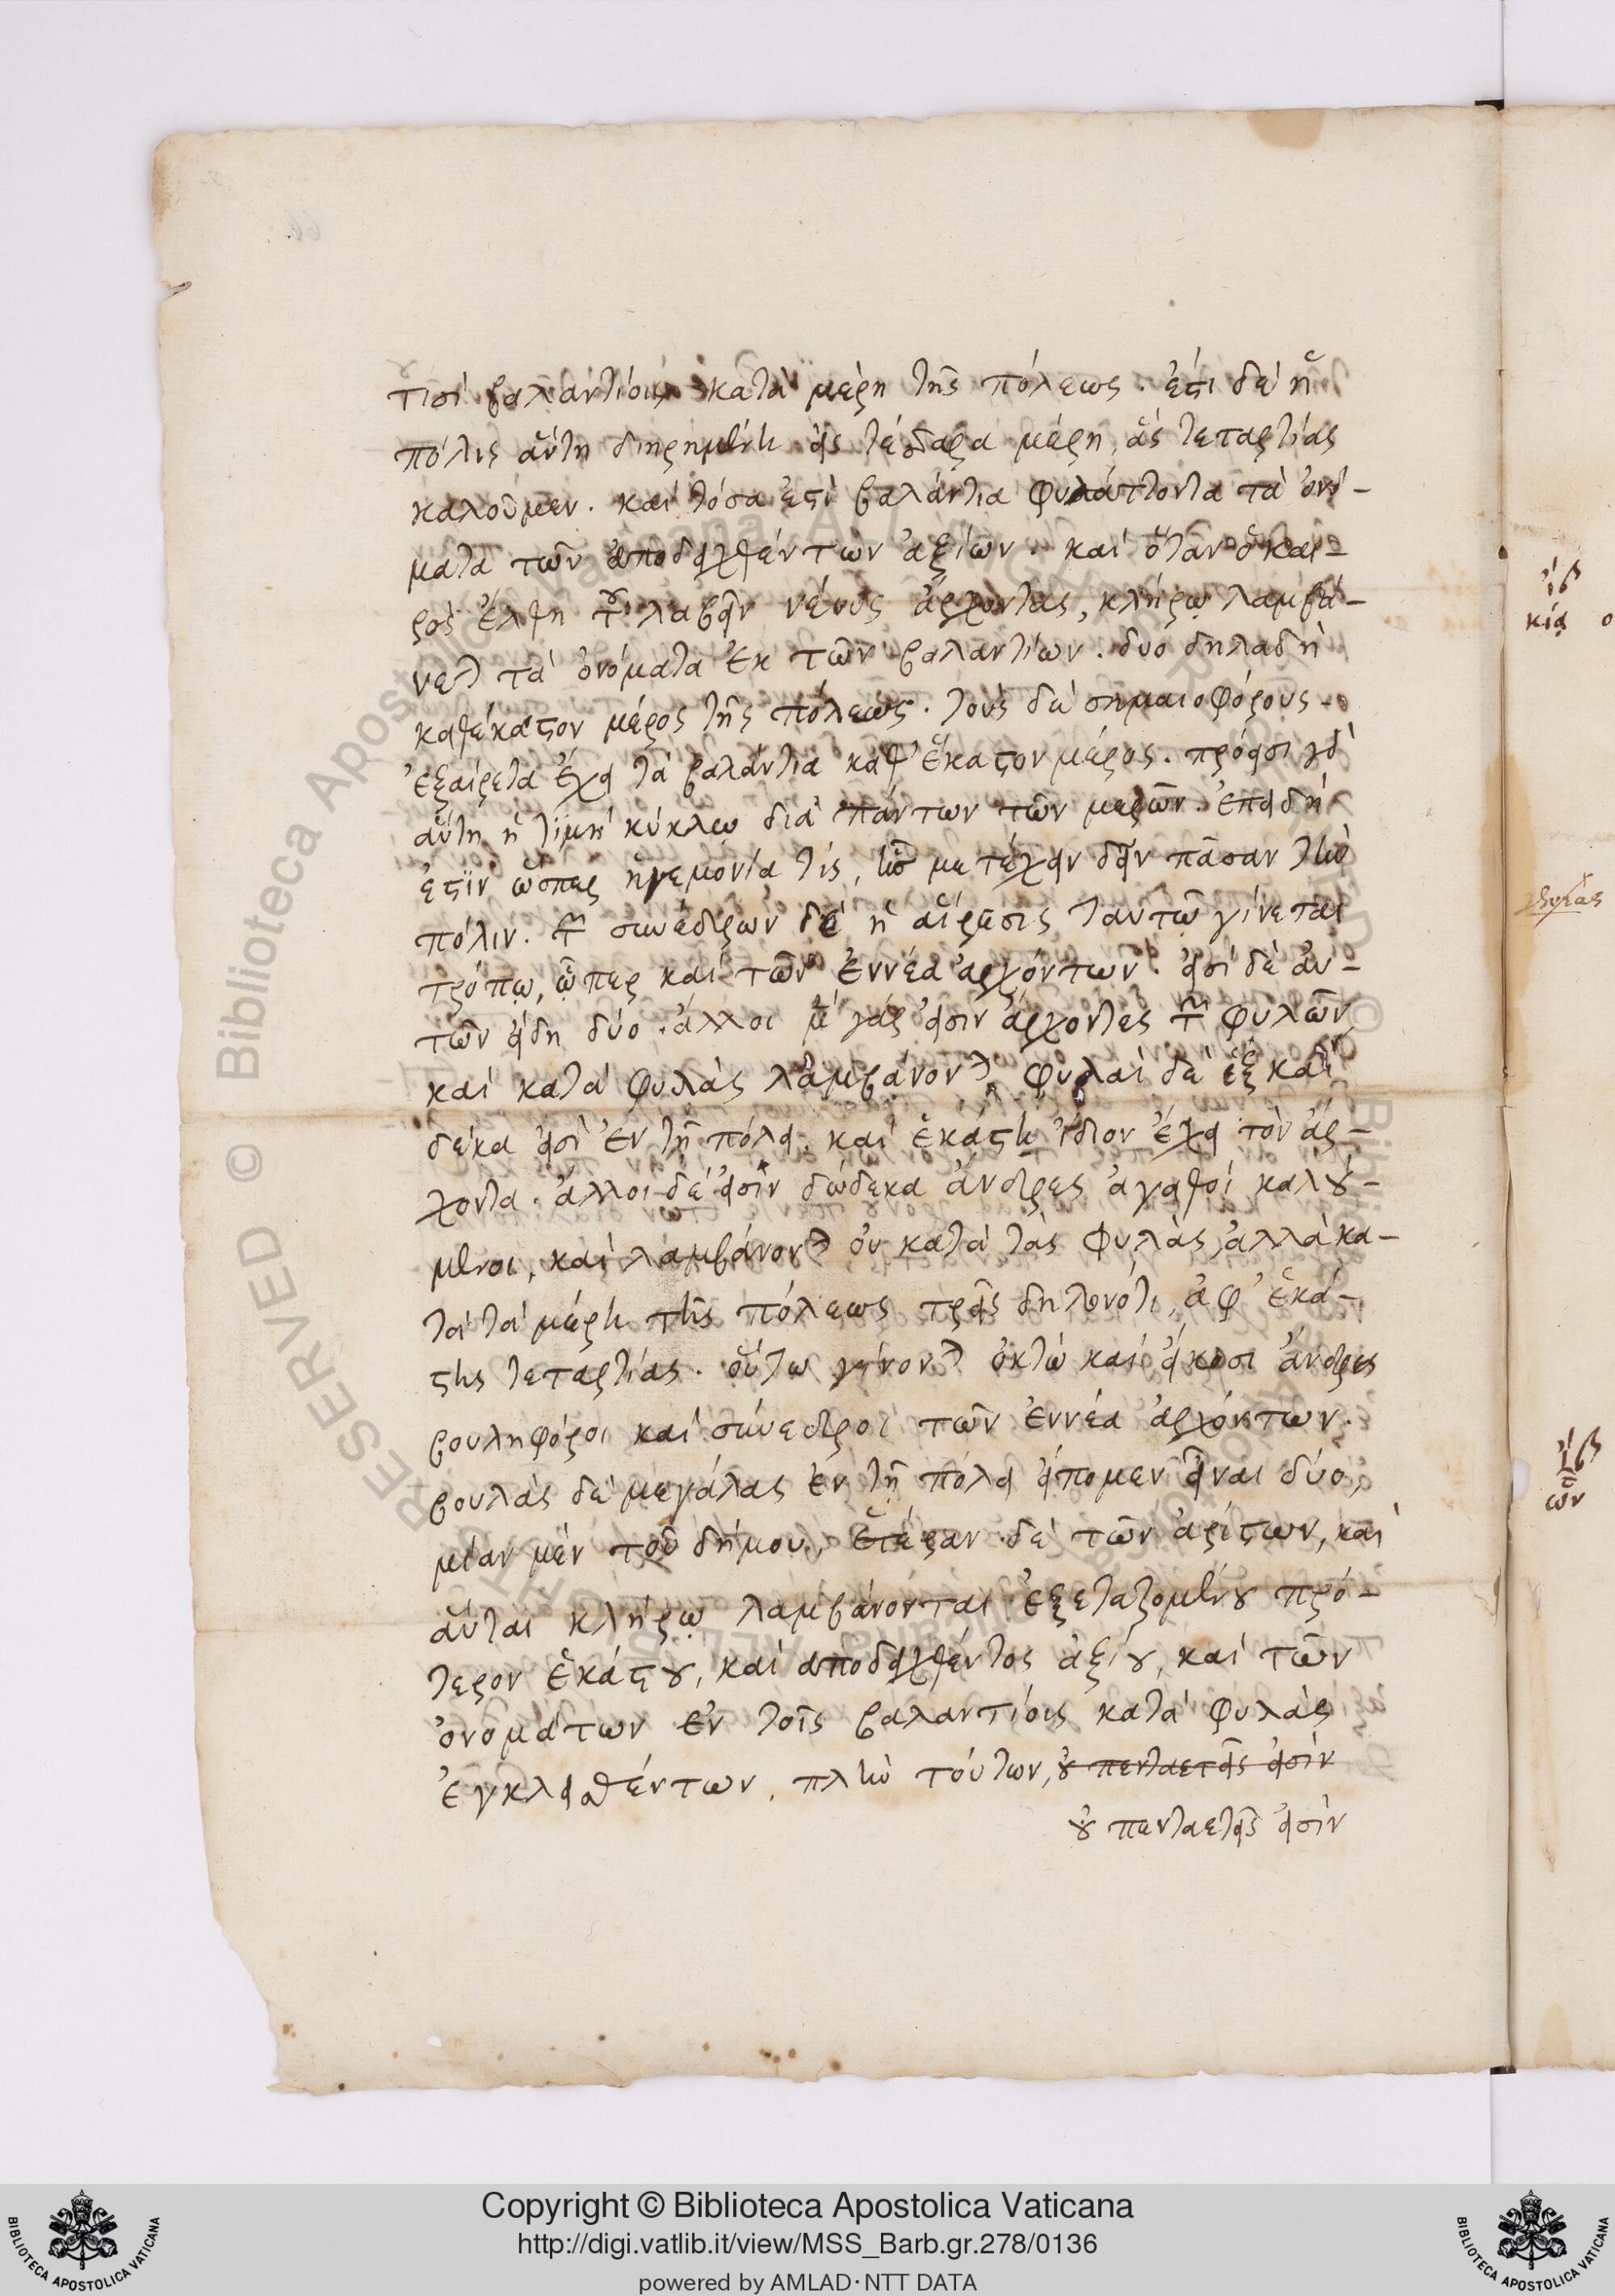 τισὶ βαλαντίοις κατὰ μέρη τῆς πόλεως. ἔστι δὲ ἡ
πόλις αὕτη διῃρημένη εἰς τέσσαρα μέρη, ἃς τεταρτίας
καλοῦμεν. καὶ τόσα ἐστὶ βαλάντια φυλάττοντα τὰ ὀνό-
ματα τῶν ἀποδειχθέντων ἀξίων. καὶ ὅταν ὁ και-
ρὸς ἔλθῃ τοῦ λαβεῖν νέους ἄρχοντας, κλήρῳ λαμβά-
νεται τὰ ὀνόματα ἐκ τῶν βαλαντίων. δύο δηλαδὴ
καθέκαστον μέρος τῆς πόλεως. τοὺς δὲ σημαιοφόρους
ἐξαίρετα ἔχει τὰ βαλάντια καθ' ἕκαστον μέρος. πρόεισι γὰρ
αὕτη ἡ τιμὴ κύκλῳ διὰ πάντων τῶν μερῶν. ἐπειδή
ἐστιν ὥσπερ ἡγεμονία τις, ἧς μετέχειν δεῖν πᾶσαν τὴν
πόλιν. τῶν συνέδρων δὲ ἡ αἵρεσις ταὐτῷ γίνεται
τρόπῳ, ᾧπερ καὶ τῶν ἐννέα ἀρχόντων. εἰσὶ δὲ αὐ-
τῶν εἴδη δύο. ἄλλοι μὲν γάρ εἰσιν ἄρχοντες τῶν φυλῶν
καὶ κατὰ φυλὰς λαμβάνονται. φυλαὶ δὲ ἓξ καὶ
δέκα εἰσὶ ἐν τῇ πόλει. καὶ ἑκάστη ἴδιον ἔχει τὸν ἄρ-
χοντα. ἄλλοι δέ εἰσιν δώδεκα ἄνδρες ἀγαθοὶ καλού-
μενοι, καὶ λαμβάνονται οὐ κατὰ τὰς φυλὰς, ἀλλὰ κα-
τὰ τὰ μέρη τῆς πόλεως τρεῖς δηλονότι, ἀφ' ἑκά-
στης τεταρτίας. οὕτω γίνονται ὀκτὼ καὶ εἴκοσι ἄνδρες
βουληφόροι καὶ σύνεδροι τῶν ἐννέα ἀρχόντων.
βουλὰς δὲ μεγάλας ἐν τῇ πόλει εἴπομεν εἶναι δύο,
μίαν μὲν τοῦ δήμου, ἑτέραν δὲ τῶν ἀρίστων, καὶ
αὗται κλήρῳ λαμβάνονται ἐξεταζομένου πρό-
τερον ἑκάστου, καὶ ἀποδειχθέντος ἀξίου, καὶ τῶν
ὀνομάτων ἐν τοῖς βαλαντίοις κατὰ φυλὰς
ἐγκλεισθέντων. πλὴν τούτων, οὐ πενταετεῖς εἰσὶν
οὐ πενταετεῖς εἰσὶν
Copyright © Biblioteca Apostolica Vaticana
http://digi.vatlib.it/view/MSS_Barb.gr.278/0136
powered by AMLAD·NTT DATA